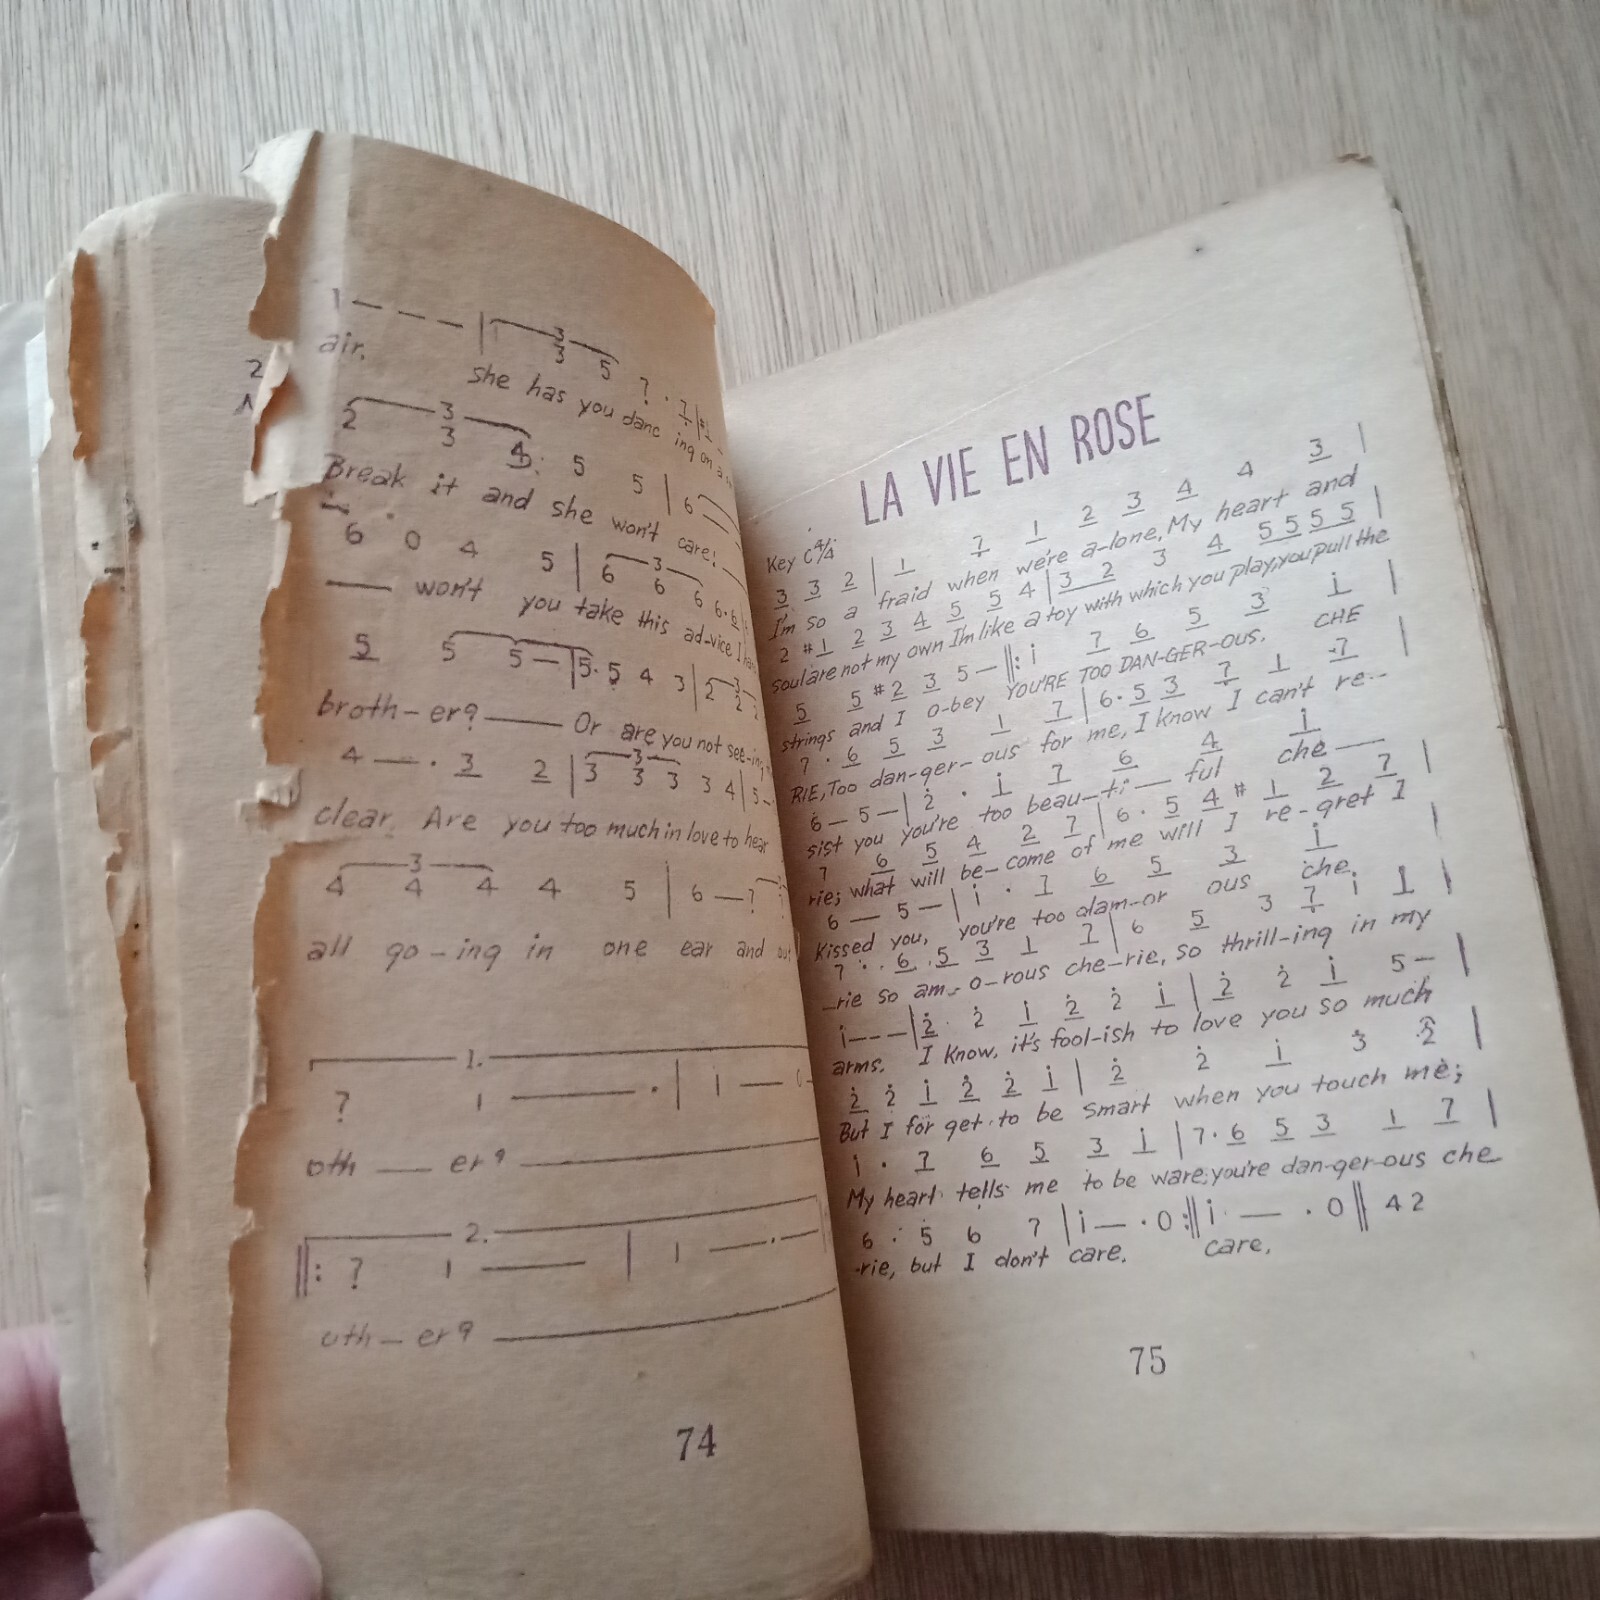 1 — — — |
air. She has you danc ing on a
2 3 4 5 5 | 6
Break it and she won't care!
6 0 4 5 | 6 6 6 6 · 6
—— won't you take this ad-vice I
5 5 5 — | 5 · 5 4 3 | 2 2
broth-er? —— Or are you not see-ing
4 — · 3 2 | 3 3 3 3 4 | 5 -
clear. Are you too much in love to hear
3
4 4 4 4 5 | 6 — 7
all go-ing in one ear and out
1.
7 1 —— · | i — 0
oth — er?
2.
||: 7 1 —— | 1 — · —
oth — er?
74
LA VIE EN ROSE
Key C 4/4
3 3 2 | 1 7 1 2 3 4 4 3 |
I'm so a fraid when we're a-lone, My heart and
2 #1 2 3 4 5 5 4 | 3 2 3 4 5 5 5 5 |
soul are not my own I'm like a toy with which you play, you pull the
5 5 #2 3 5 — ||: i 7 6 5 3 i |
strings and I o-bey YOU'RE TOO DAN-GER-OUS. CHE
7 · 6 5 3 1 7 | 6 · 5 3 7 1 7 |
RIE, Too dan-ger-ous for me, I know I can't re--
6 — 5 — | 2 · i 7 6 4 i |
sist you you're too beau-ti — ful che —
7 6 5 4 2 7 | 6 · 5 4 # 1 2 7 |
rie; what will be-come of me will I re-gret I
6 — 5 — | i · 7 6 5 3 i |
Kissed you, you're too glam-or ous che,
7 · · 6 5 3 1 7 | 6 5 3 7 i 1 |
—rie so am-o-rous che-rie, so thrill-ing in my
i - - - | 2 2 i 2 2 i | 2 2 i 5 — |
arms. I know, it's fool-ish to love you so much
2 2 i 2 2 i | 2 2 i 3 2 |
But I for get to be smart when you touch me;
i · 7 6 5 3 i | 7 · 6 5 3 1 7 |
My heart tells me to be ware; you're dan-ger-ous che
6 · 5 6 7 | i — · 0 :|| i — · 0 || 4 2
-rie, but I don't care. care.
75